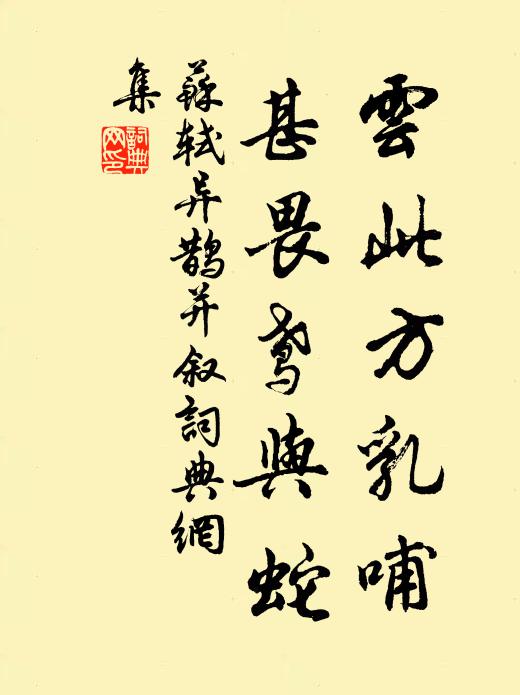 雲此方乳哺
甚畏鸢與蛇
蘇軾异鵲并叙詞典網
集
詞典
网印